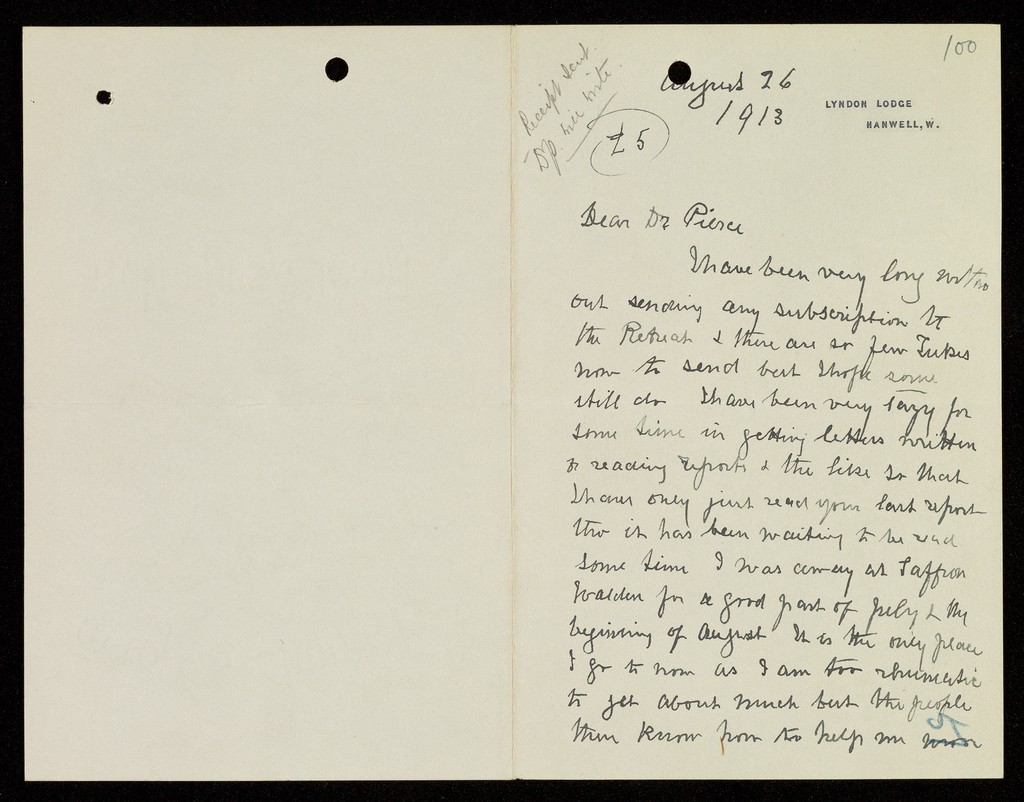 100
Receipt sent.
D/P. will write.
August 26
1913
LYNDON LODGE
HANWELL, W.
£5
Dear Dr Pierce
I have been very long with
out sending any subscription to
the Retreat & there are so few Tukes
now to send but I hope some
still do I have been very lazy for
some time in getting letters written
& reading reports & the like so that
I have only just read your last report
tho it has been waiting to be read
some time I was away at Saffron
Walden for a good part of July & the
beginning of August It is the only place
I go to now as I am too rheumatic
to get about much but the people
there know how to help me